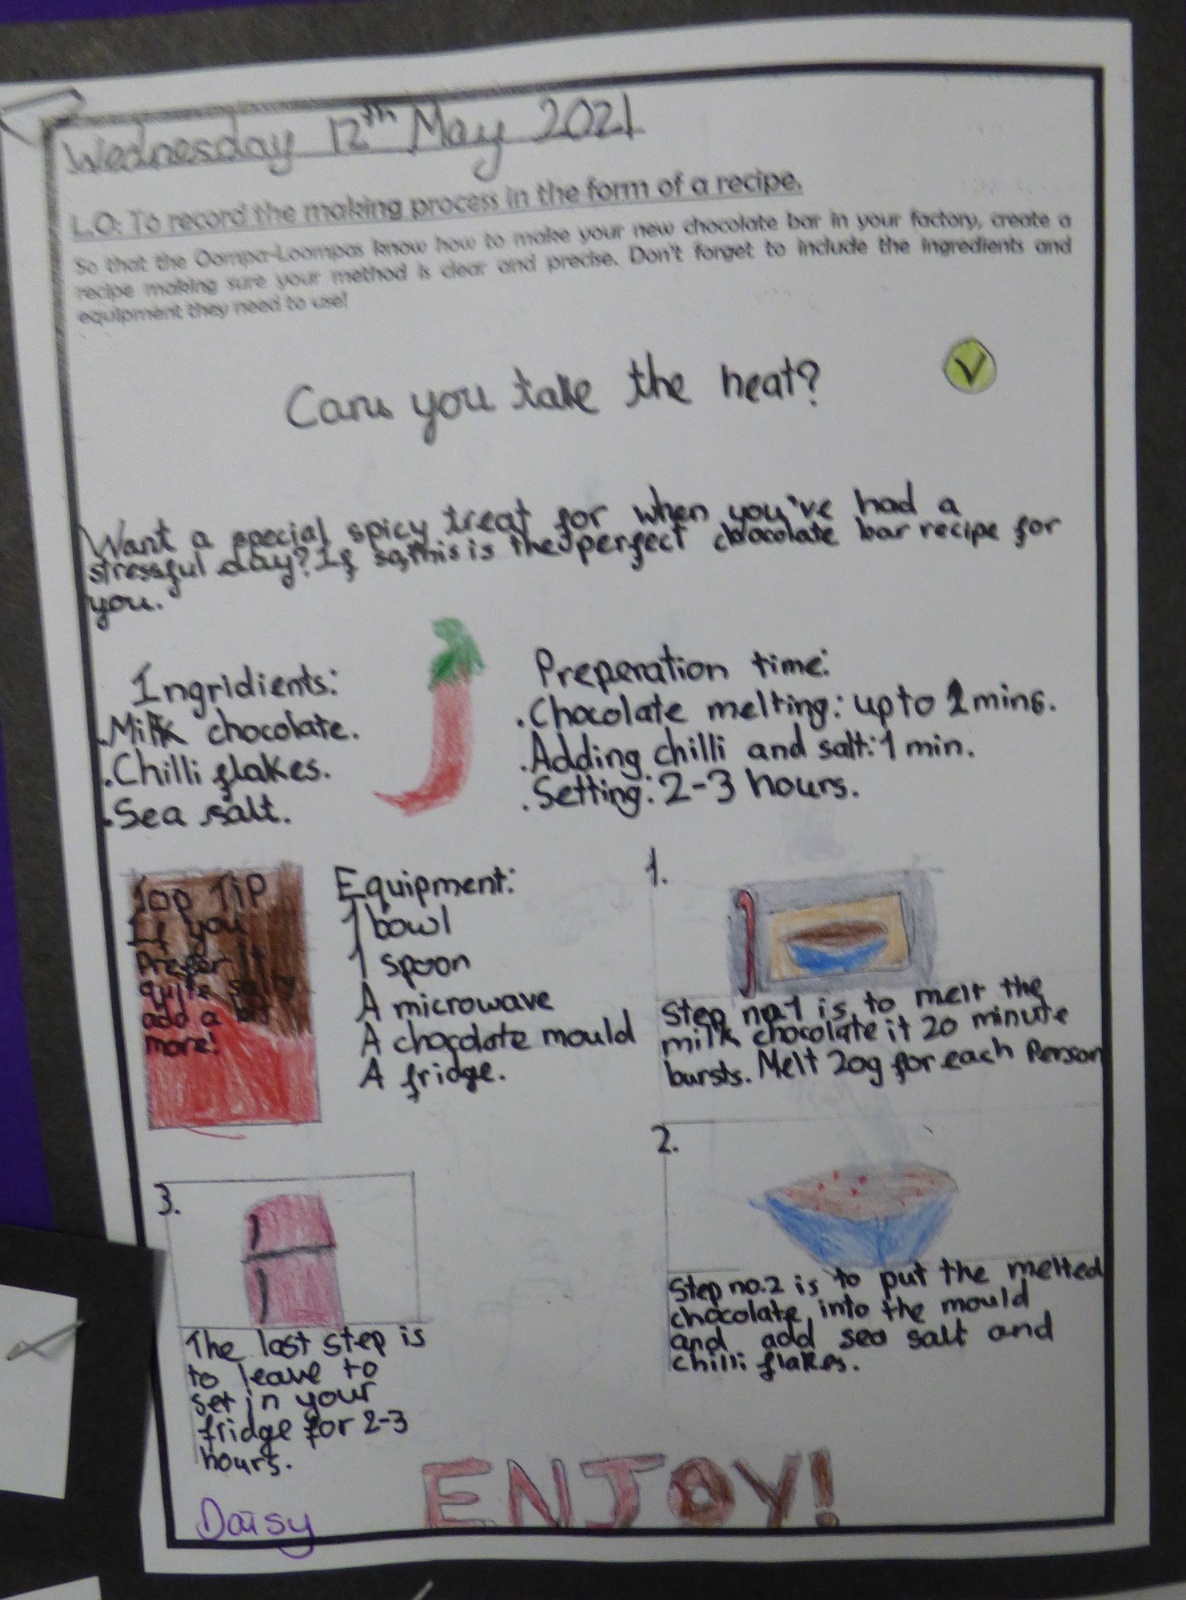 Wednesday 12th May 2021
L.O: To record the making process in the form of a recipe.
So that the Oompa-Loompas know how to make your new chocolate bar in your factory, create a
recipe making sure your method is clear and precise. Don't forget to include the ingredients and
equipment they need to use!
Can you take the heat?
Want a special spicy treat for when you've had a
stressful day? If so, this is the perfect chocolate bar recipe for
you.
Ingridients:
.Milk chocolate.
.Chilli flakes.
.Sea salt.
Preperation time:
.Chocolate melting: up to 2 mins.
.Adding chilli and salt: 1 min.
.Setting: 2-3 hours.
Top TiP
If you
Prefer it
quite salty
add a bit
more!
Equipment:
1 bowl
1 spoon
A microwave
A chocolate mould
A fridge.
1.
Step no.1 is to melt the
milk chocolate it 20 minute
bursts. Melt 20g for each Person
2.
Step no.2 is to put the melted
chocolate into the mould
and add sea salt and
chilli flakes.
3.
The last step is
to leave to
set in your
fridge for 2-3
hours.
ENJOY!
Daisy